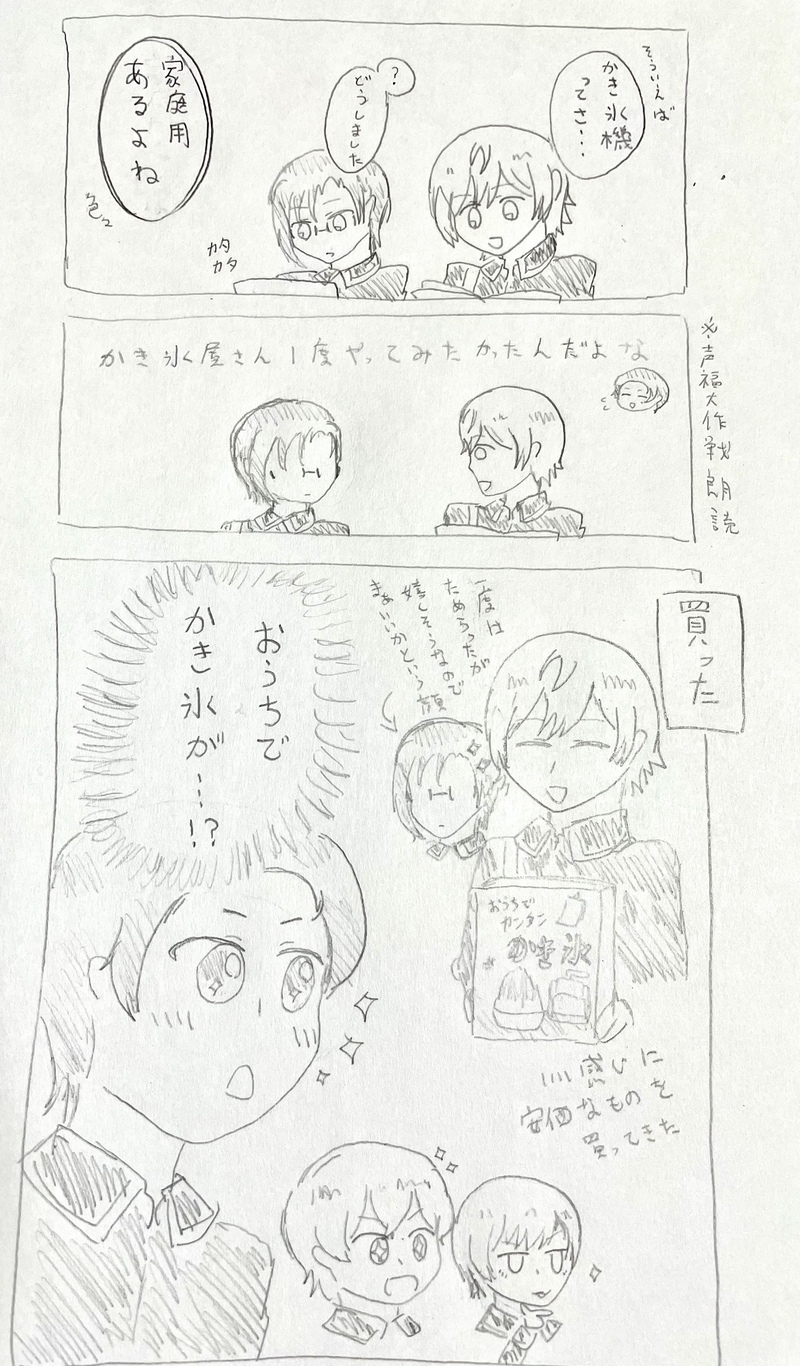 そういえば
かき氷機
ってさ・・・
?
どうしました
家庭用
あるよね
カタ
カタ
かき氷屋さん1度やってみたかったんだよな
※声福大作戦朗読
買った
一度は
ためらったが
嬉しそうなので
まぁいいかという顔
おうちで
カンタン
かき氷
おうちで
かき氷が…!?
いい感じに
安価なものを
買ってきた